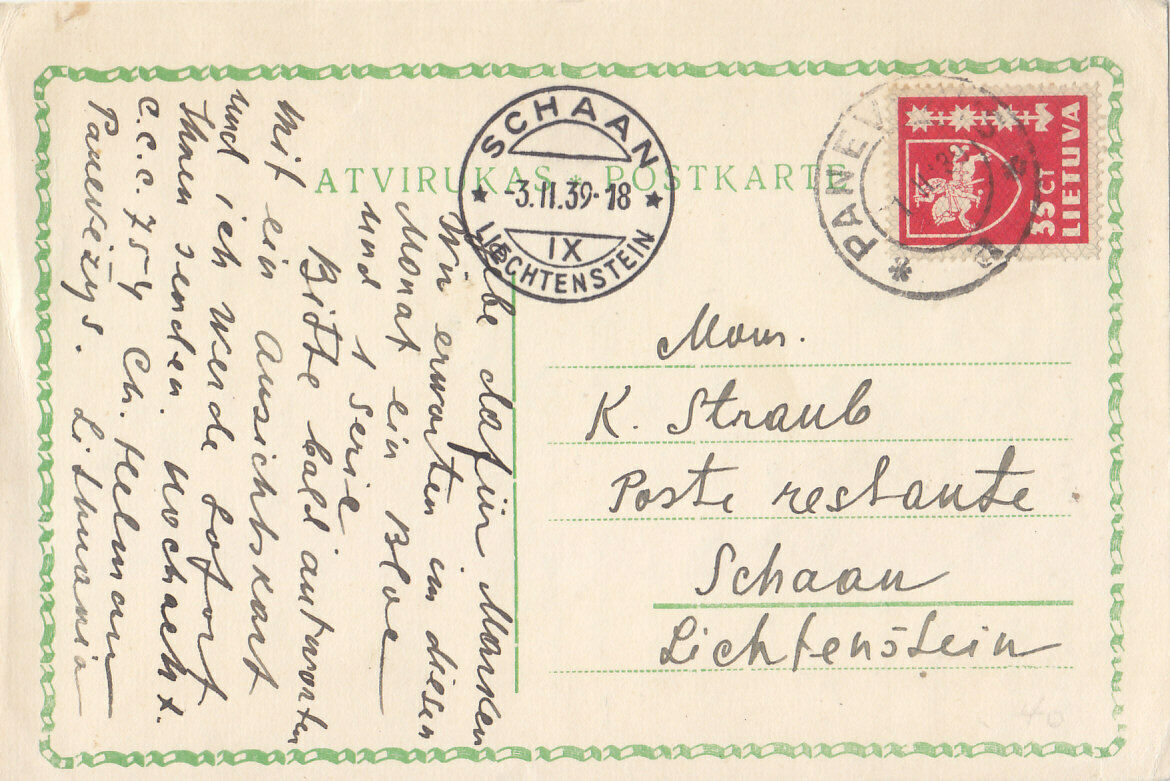 ATVIRUKAS * POSTKARTE
SCHAAN
-3.II.39-18
IX
LIECHTENSTEIN
35 CT
LIETUVA
Mons.
K. Straub
Poste restante
Schaan
Lichtenstein
gebe dafür Marken
Wir erwarten im diesen
Monat ein Bloc
und 1 Serie
Bitte bald antworten
mit ein Ansichtskart
und ich werde sofort
Ihnen senden. Hochacht.
C.C.C. 754 Ch. Helman
Panevėžys. Lithuania
40